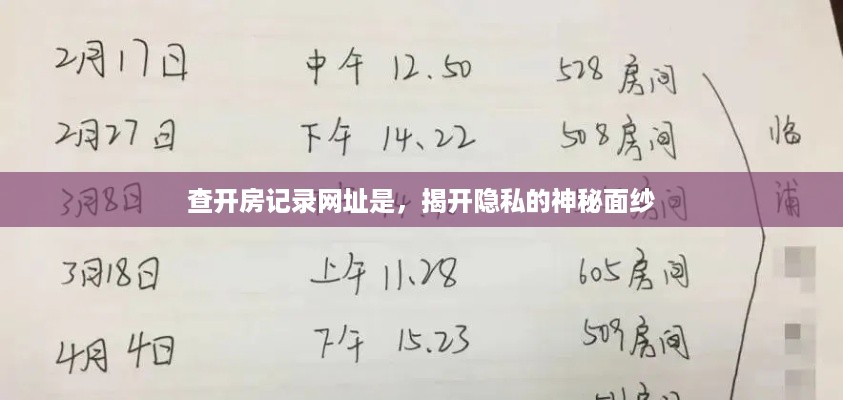 2月17日 中午 12.50 528 房间
2月27日 下午 14.22 508 房间
临浦
3月8日 房间
查开房记录网址是，揭开隐私的神秘面纱
3月18日 上午 11.28 605 房间
4月4日 下午 15.23 509 房间
房间